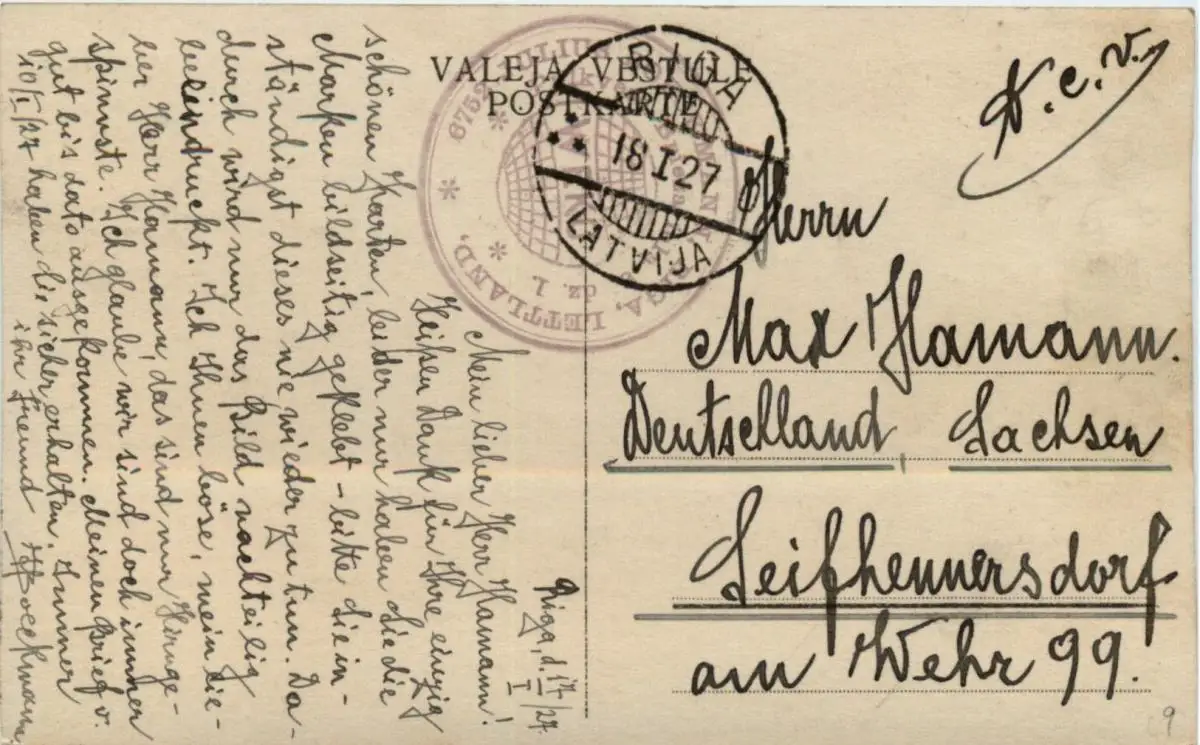 VALEJA VĒSTULE
POSTKARTE
RIGA
18 I 27
LATVIJA
6752 JULIUS
RIGA, LETTLAND,
dz. 1.
Riga, d. 17/I/27.
Mein lieber Herr Hamann!
Heißen Dank für Ihre einzig
schönen Karten, leider nur haben Sie die
Marken bildseitig geklebt - bitte die in-
ständigst dieses nie wieder zu tun. Da-
durch wird nur das Bild nachteilig
beeindruckt. Ich Ihnen böse, mein lie-
ber Herr Hamann, das sind nur Hirnge-
spinnste. Ich glaube wir sind doch immer
gut bis dato ausgekommen. Meinen Brief v.
10/I/27 haben Sie sicher erhalten. Immer
ihr Freund
HBoeckmann
Herrn
Max Hamann.
Deutschland, Sachsen
Seifhennersdorf
am Wehr 99.
9